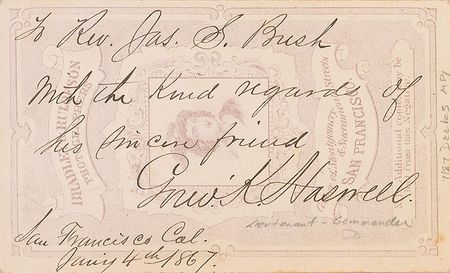 To Rev. Jas. S. Bush
With the Kind regards of
his sincere friend
Gouv. K. Haswell.
Lieutenant-Commander
San Francisco Cal.
Jany 4th 1867.
BRADLEY & RULOFSON
PHOTOGRAPHERS
Montgomery
& Sacramento
SAN FRANCISCO
Additional copies may be
from this Negative